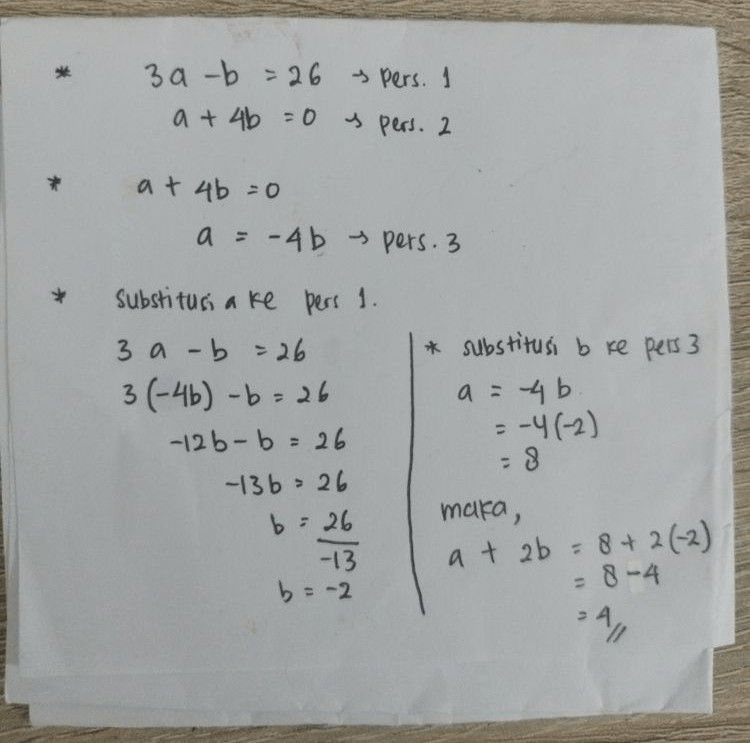 * 3a - b = 26 → pers. 1
a + 4b = 0 → pers. 2
* a + 4b = 0
a = -4b → pers. 3
* substitusi a ke pers 1.
3 a - b = 26
3(-4b) - b = 26
-12b - b = 26
-13b = 26
b = 26
-13
b = -2
* substitusi b ke pers 3
a = -4b
= -4(-2)
= 8
maka,
a + 2b = 8 + 2(-2)
= 8 - 4
= 4 //